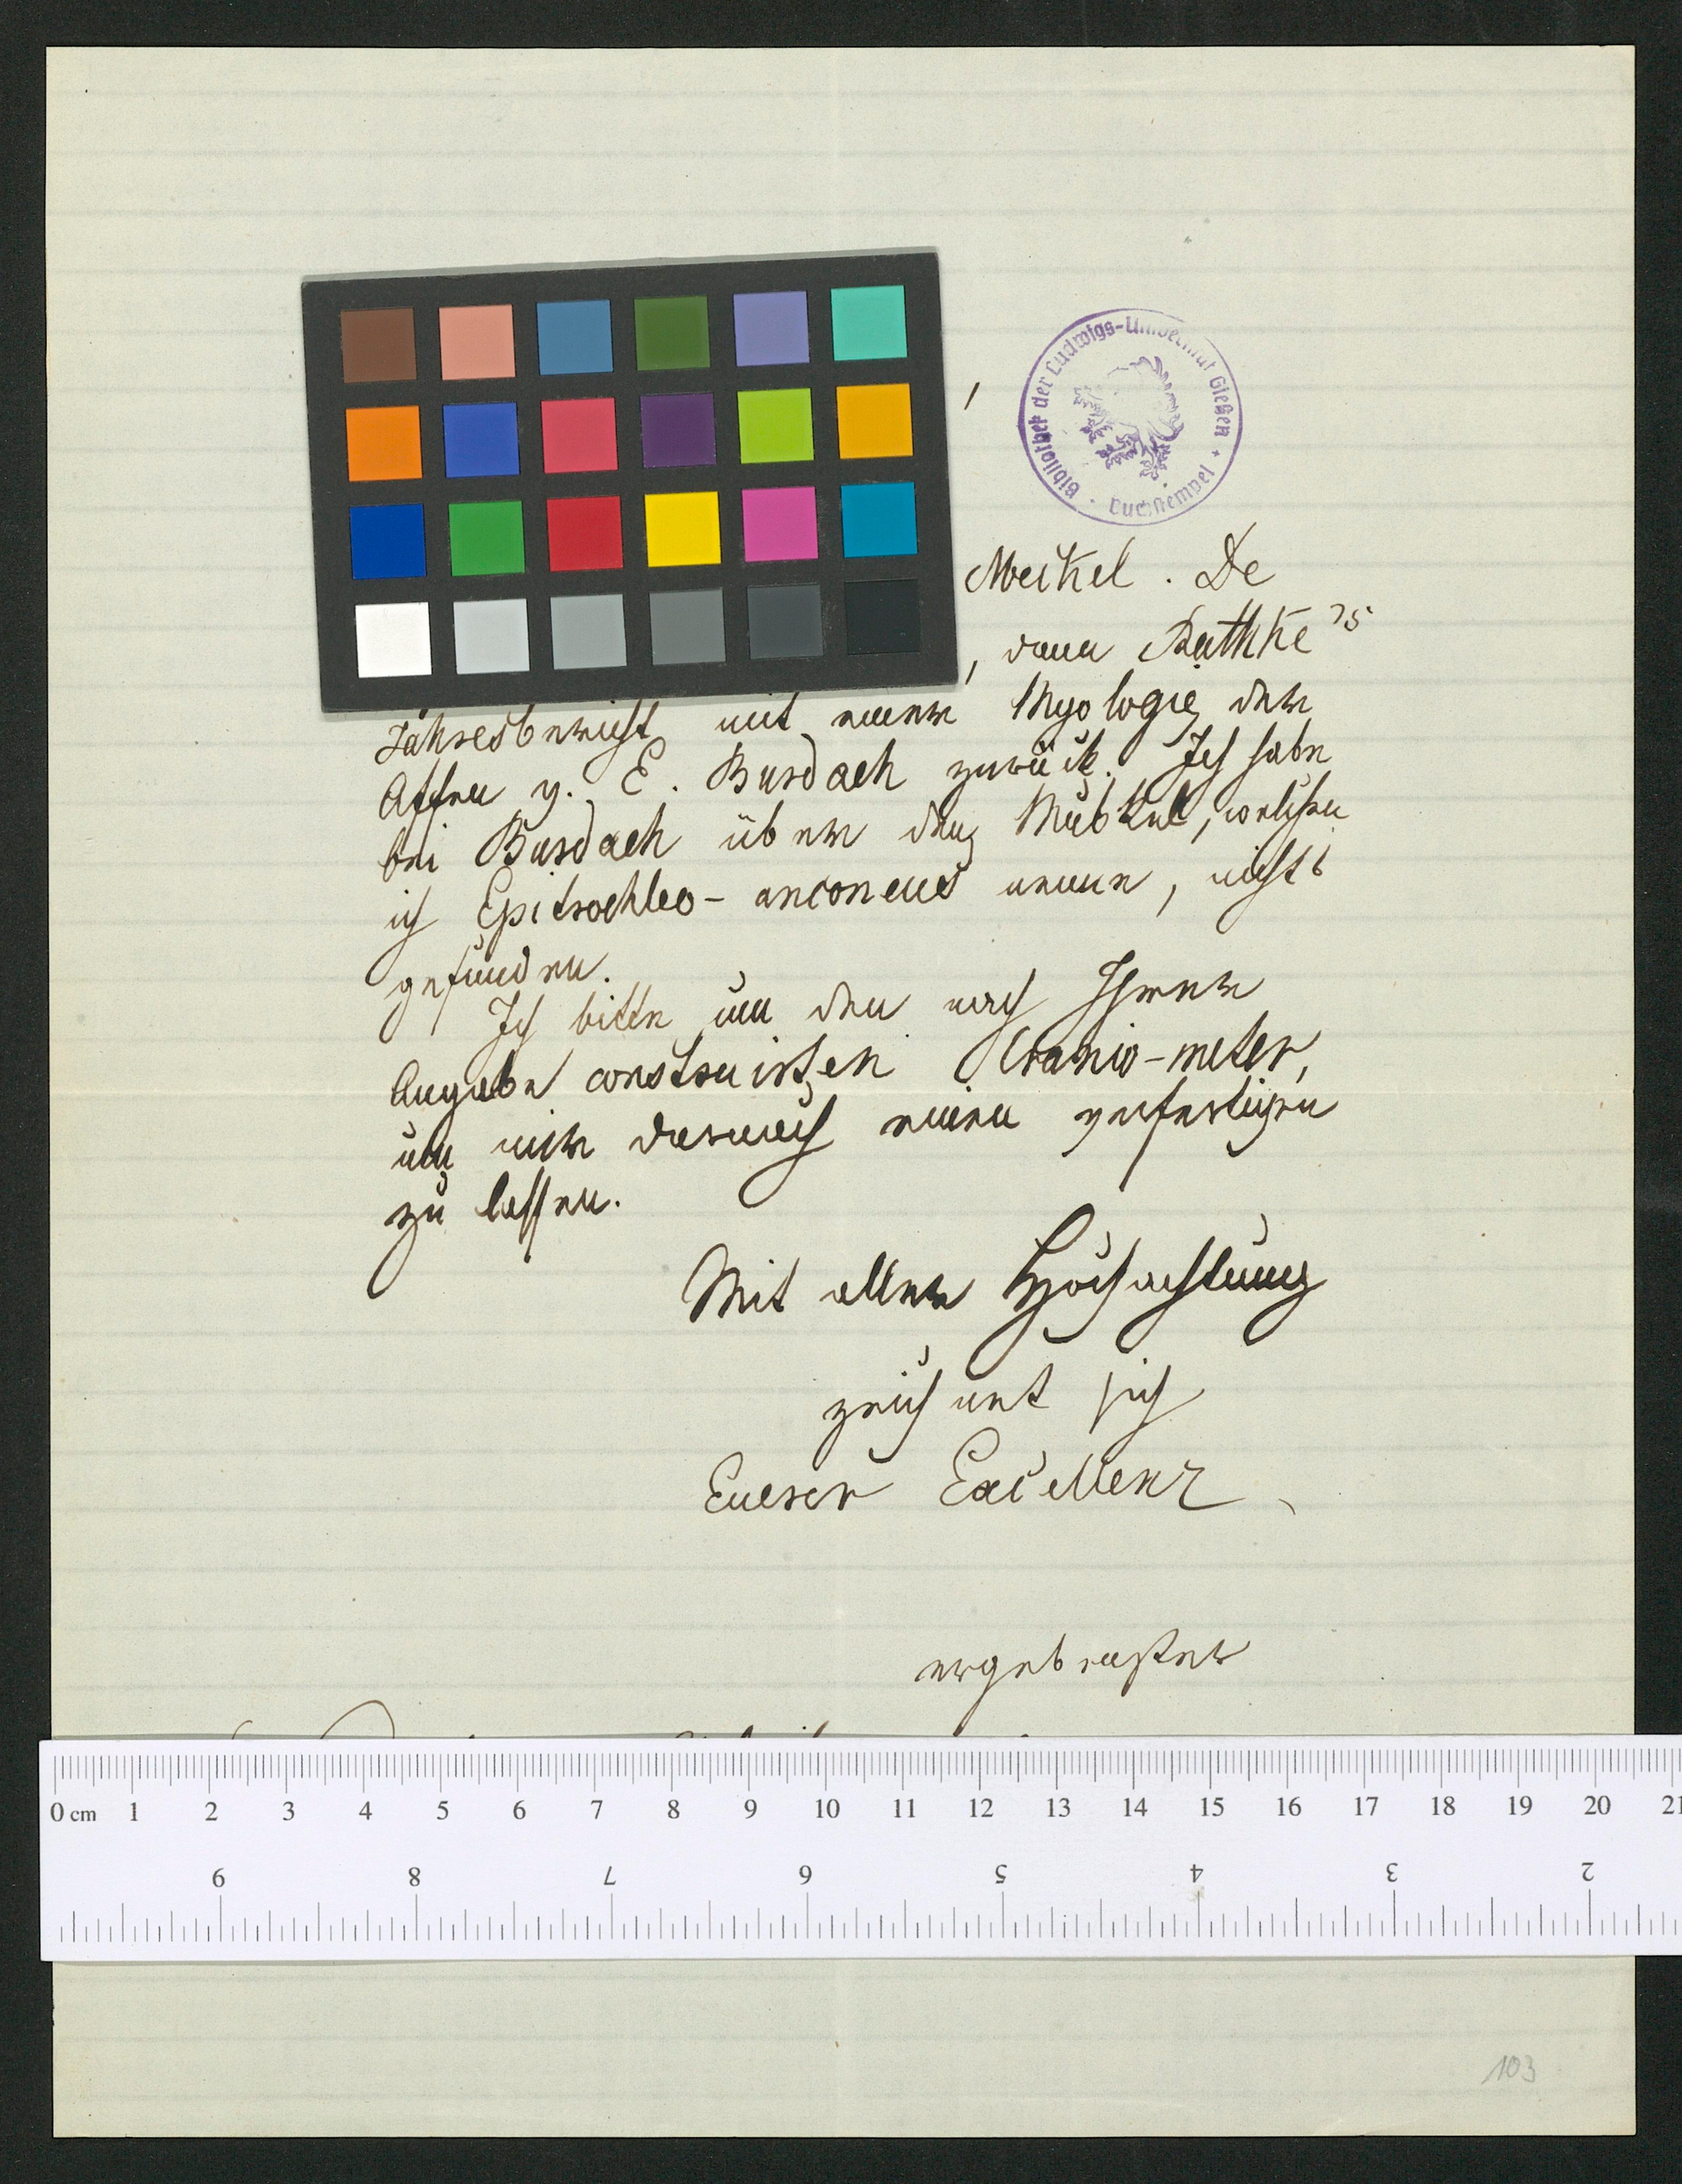 Bibliothek der Ludwigs-Universität Gießen
Meckel. De
, dann Rathke's
Jahresbericht mit einer Myologie der
Affen v. E. Burdach zurück. Ich habe
bei Burdach über den Muskel, welchen
ich Epitrochleo-anconeus nenne, nichts
gefunden.
Ich bitte um den nach Ihrer
Angabe construirten Cranio-meter,
um mir darnach einen verfertigen
zu lassen.
Mit aller Hochachtung
zeichnet sich
Euerer Excellenz
ergebenster
0 cm 1 2 3 4 5 6 7 8 9 10 11 12 13 14 15 16 17 18 19 20 21
9 8 7 6 5 4 3 2
103